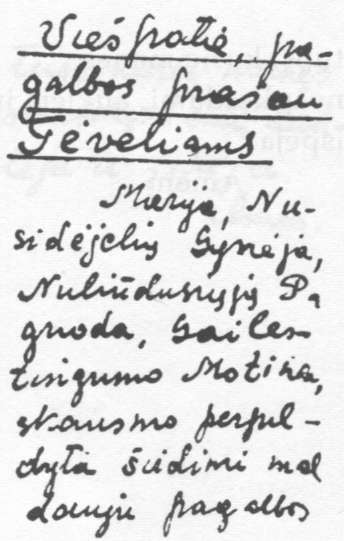 Viešpatie, pa-
galbos prašau
Tėveliams
Marija, Nu-
sidėjėlių Gynėja,
Nuliūdusiųjų Pa
guoda, Gailes-
tingumo Motina,
skausmo perpul-
dyta širdimi mal
dauju pagalbos